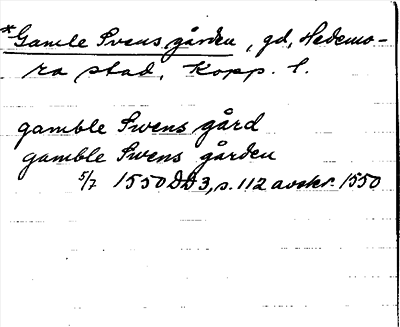 *Gamle Svens gården, gd, Hedemo-
ra stad, Kopp. l.
gamble Swens gård
gamble Swens gården
5/7 1550 DD 3, s. 112 avskr. 1550